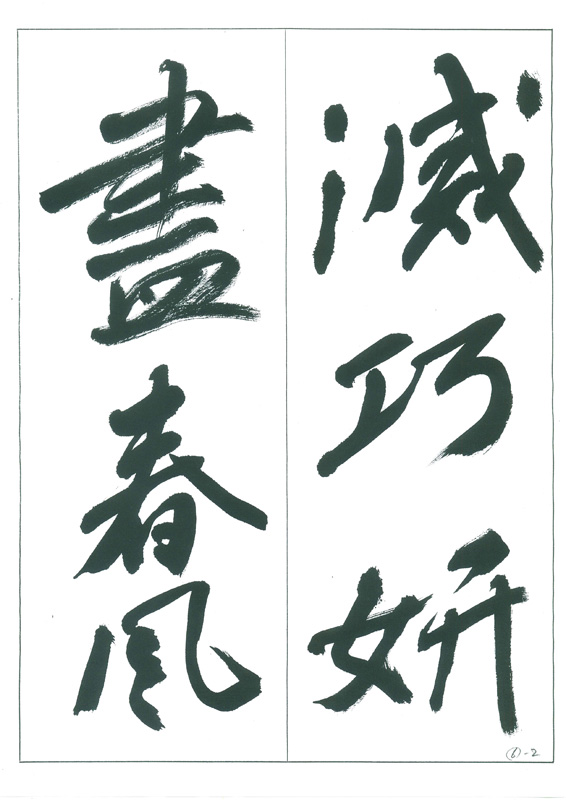 滅巧妍
盡春風
⑥-2